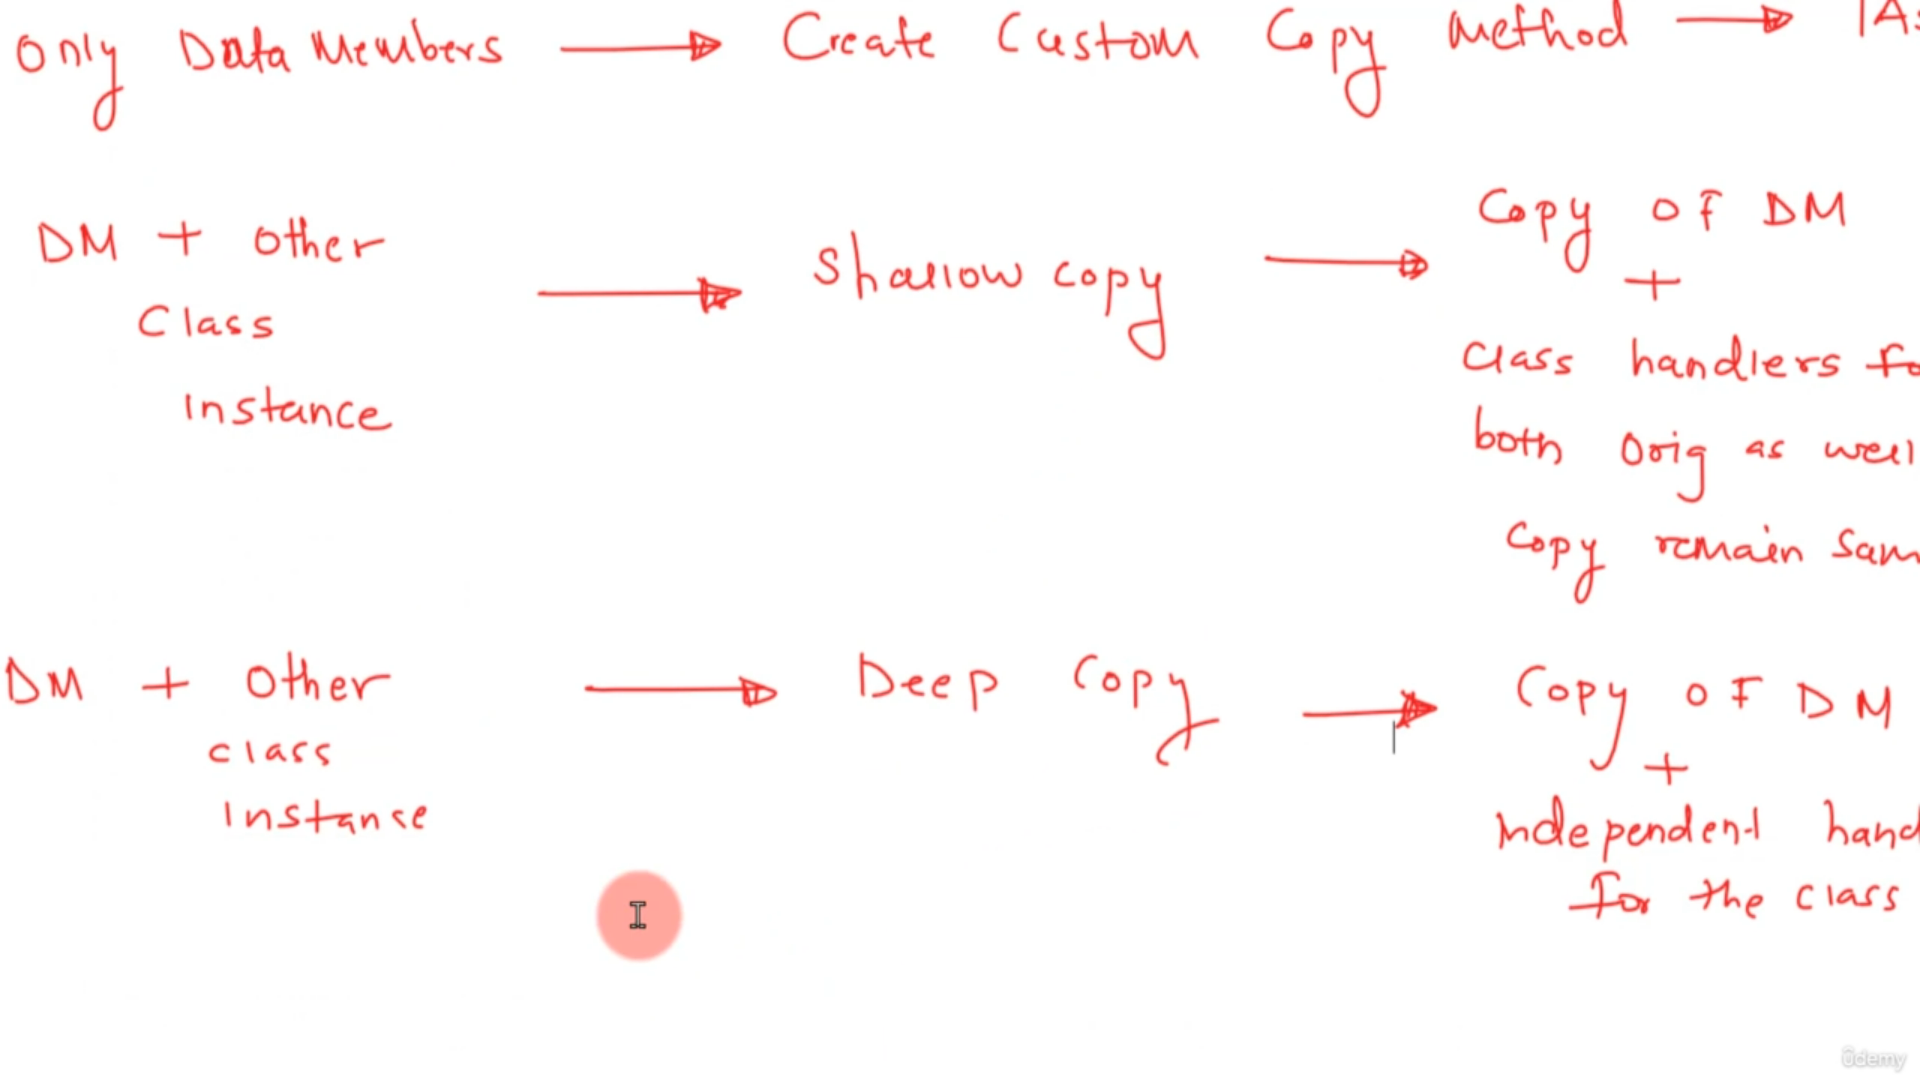 Only Data Members → Create Custom Copy Method →
DM + Other
Class
Instance
→ Shallow copy →
Copy OF DM
+
Class handlers
both Orig as well
Copy remain
DM + Other
class
Instance
→ Deep Copy →
Copy OF DM
+
independent
for the class
ûdemy